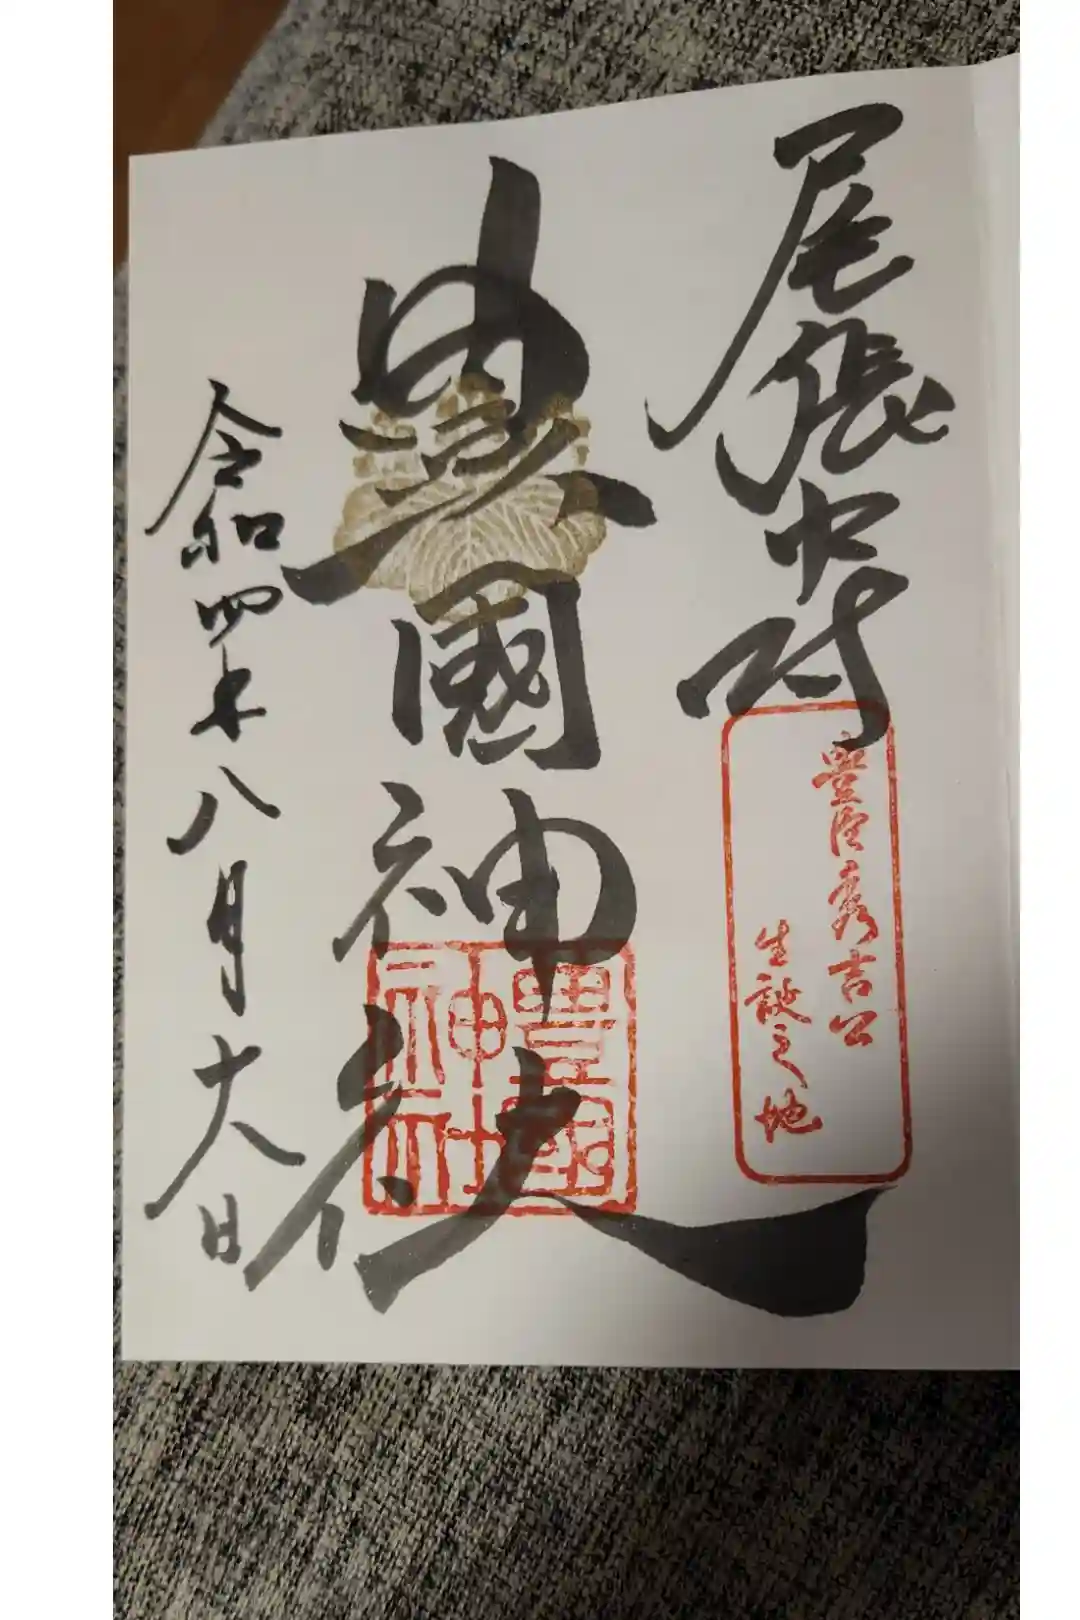 尾張中村
豐臣秀吉公
生誕之地
豊國神社
豊國
神社
令和四年八月六日